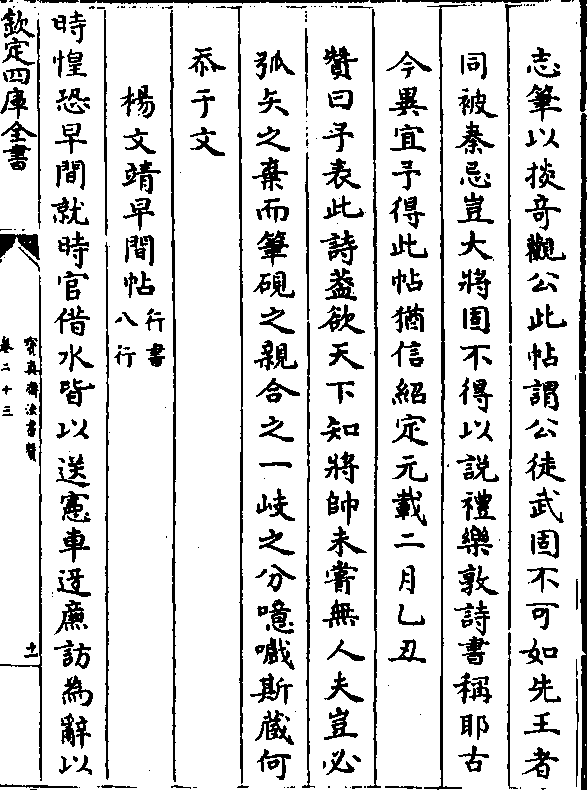 志筆以掞奇觀公此帖謂公徒武固不可如先王者
同被秦忌豈大將固不得以說禮樂敦詩書稱耶古
今異宜予得此帖猶信紹定元載二月乙丑
贊曰予表此詩葢欲天下知將帥未嘗無人夫豈必
弧矢之棄而筆硯之親合之一岐之分噫嘻斯蔵何
忝于文
楊文靖早間帖行書八行
時惶恐早間就時官借水皆以送憲車迓㢘訪為辭以
欽定四庫全書
寶真齋法書贊
卷二十三
十一